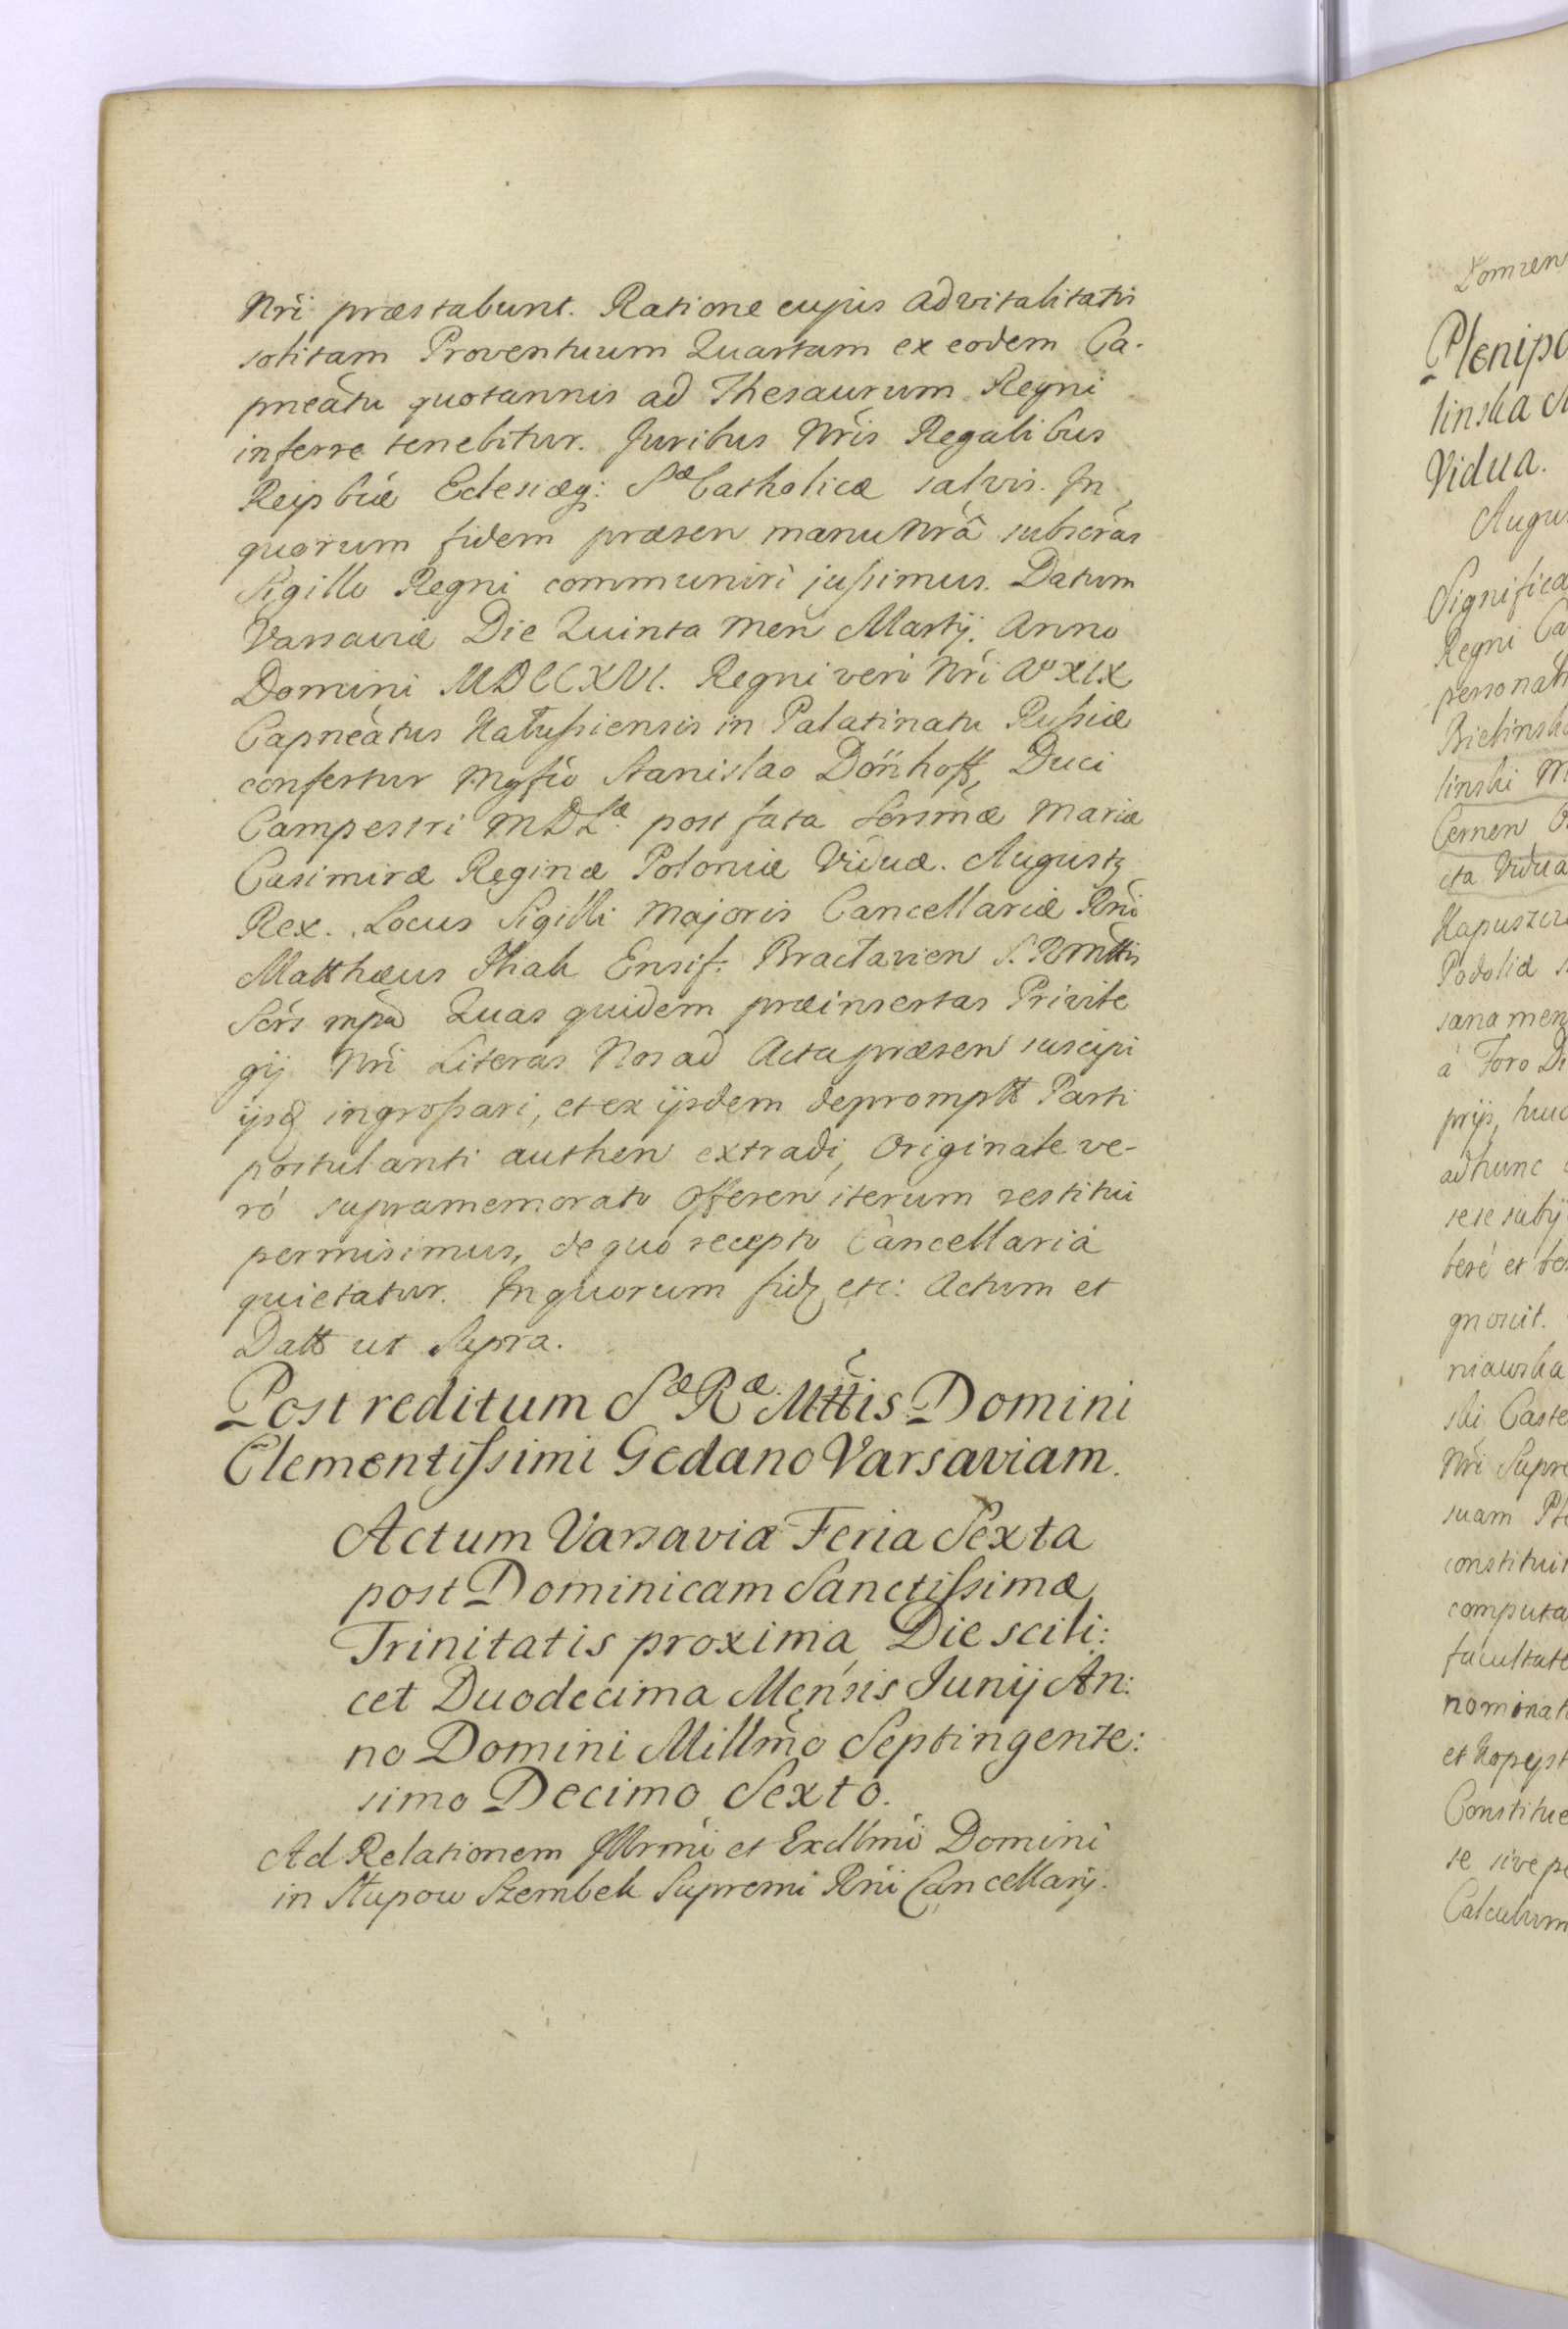 Nri præstabunt. Ratione cujus advitalitatis
solitam Proventuum Quartam ex eodem Ca-
pneatu quotannis ad Thesaurum Regni
inferre tenebitur. Juribus Nris Regalibus
Reipbcæ Eclesiæq: Sæ Catholicæ salvis. In
quorum fidem præsen manu Nrâ subscras
Sigillo Regni communiri jussimus. Datum
Varsaviæ Die Quinta Men Martij. Anno
Domini MDCCXVI. Regni vero Nri Ao XIX
Capneatus Kałussiensis in Palatinatu Russiæ
confertur Mgfco Stanislao Dönhoff, Duci
Campestri MDLæ. post fata Sersmæ Mariæ
Casimiræ Reginæ Poloniæ Viduæ. Augustz
Rex. Locus Sigilli Majoris Cancellariæ Rni
Matthæus Ihak Ensif: Bracłavien S. R Mttis
Scrs mpa Quas quidem præinsertas Privile
gij Nri Literas Nos ad Acta præsen suscipi
ijsq ingrossari, et ex ijsdem depromptt Parti
postulanti authen extradi, Originale ve-
ro supramemorato Offeren iterum restitui
permisimus, de quo recepto Cancellaria
quietatur. In quorum fidz etc: Actum et
Datt ut Supra.
Post reditum Sæ Ræ Mttis Domini
Clementissimi Gedano Varsaviam.
Actum Varsaviæ Feria Sexta
post Dominicam Sanctissimæ
Trinitatis proxima, Die scili:
cet Duodecima Mensis Junij An:
no Domini Millmo Septingente:
simo Decimo Sexto.
Ad Relationem Illrmi et Excllmi Domini
in Słupow Szembek Supremi Rni Cancellarij.
Plenipo
linska
Vidua.
Augu
Significa
Regni Ca
personali
Bielinsk
linski M
Cernen
cta Vidua
Kapuszcz
Podoliæ
sana men
a Foro
prijs, huc
adhunc
sese subij
bere et
gnovit.
niawska
ski Caste
Nri Supre
suam
constituit
computa
facultate
nominat
et
Constitue
se sive pe
Calculum